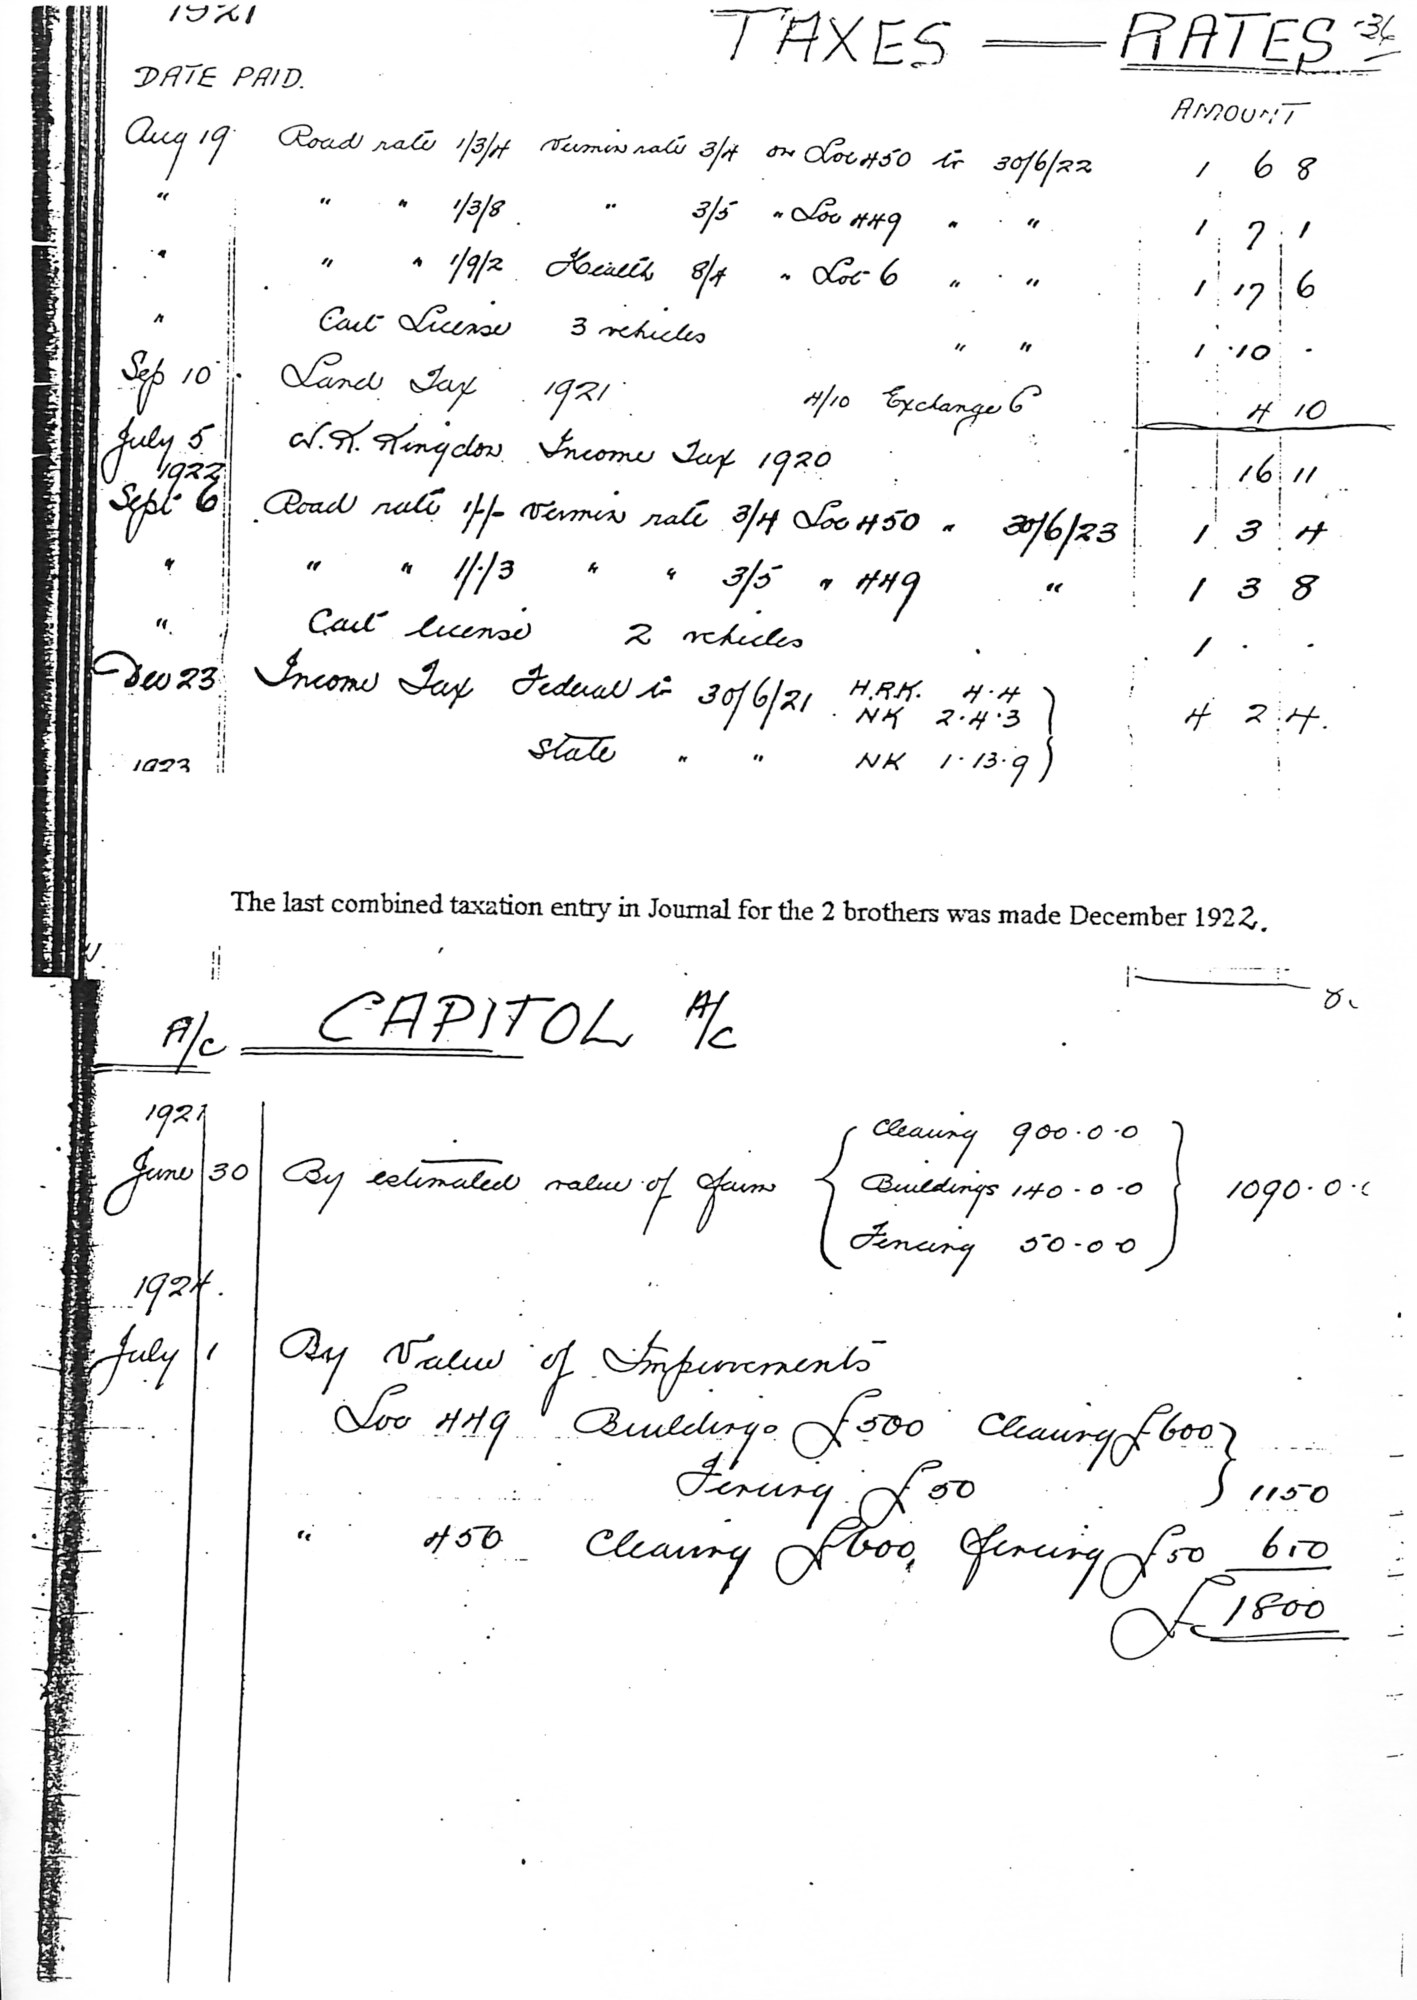 1921 TAXES — RATES 36
DATE PAID. AMOUNT
Aug 19 Road rate 1/3/4 vermin rate 3/4 on Loc 450 to 30/6/22 1 6 8
" " " 1/3/8 " 3/5 " Loc 449 " " 1 7 1
" " " 1/9/2 Health 8/4 " Lot 6 " " 1 17 6
" Cart License 3 vehicles " " 1 10 -
Sep 10 Land Tax 1921 4/10 Exchange 6 4 10
July 5 N. K. Kingdon Income Tax 1920 16 11
1922
Sept 6 Road rate 1/-/- vermin rate 3/4 Loc 450 " 30/6/23 1 3 4
" " " 1/-/3 " " 3/5 " 449 " 1 3 8
" Cart license 2 vehicles 1 - -
Dec 23 Income Tax Federal to 30/6/21 H.R.K. 4.4
NK 2.4.3 4 2 4.
State " " NK 1.13.9
1923
The last combined taxation entry in Journal for the 2 brothers was made December 1922.
A/c CAPITOL A/c
1921
Clearing 900.0.0
June 30 By estimated value of farm Buildings 140.0.0 1090.0.
Fencing 50.0.0
1924.
July 1 By Value of Improvements
Loc 449 Buildings £500 Clearing £600
Fencing £50 1150
" 450 Clearing £600, fencing £50 650
£1800